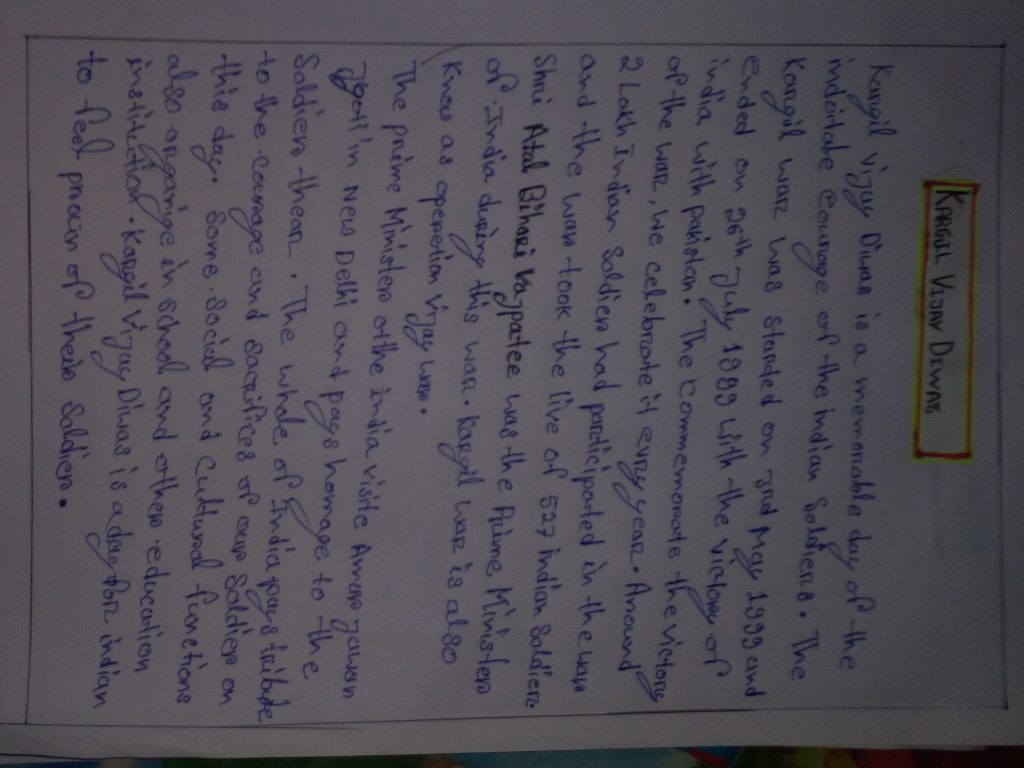 KARGIL VIJAY DIWAS
Kargil vijay Diwas is a memorable day of the
indoitabe courage of the indian Soldiers. The
Kargil war was started on 3rd May 1999 and
ended on 26th July 1999 with the victory of
india with pakistan. The commemorate the victory
of the war, we celebrate it evry year. Around
2 Lakh Indian Soldier had participated in the war
and the war took the live of 527 indian Soldiers
Shri Atal Bihari Vajpatee was the Prime Minister
of India during this war. Kargil war is also
Know as operation vijay war.
The prime Minister othe india visite Amar jawan
Jyoti in New Delhi and pays homage to the
Soldier thear. The whole of India pays tribute
to the courage and sacrifices of our Soldier on
this day. Some social and cultural functions
also organige in school and other education
institution. Kargil Vijay Diwas is a day for indian
to feel prain of their Soldier.